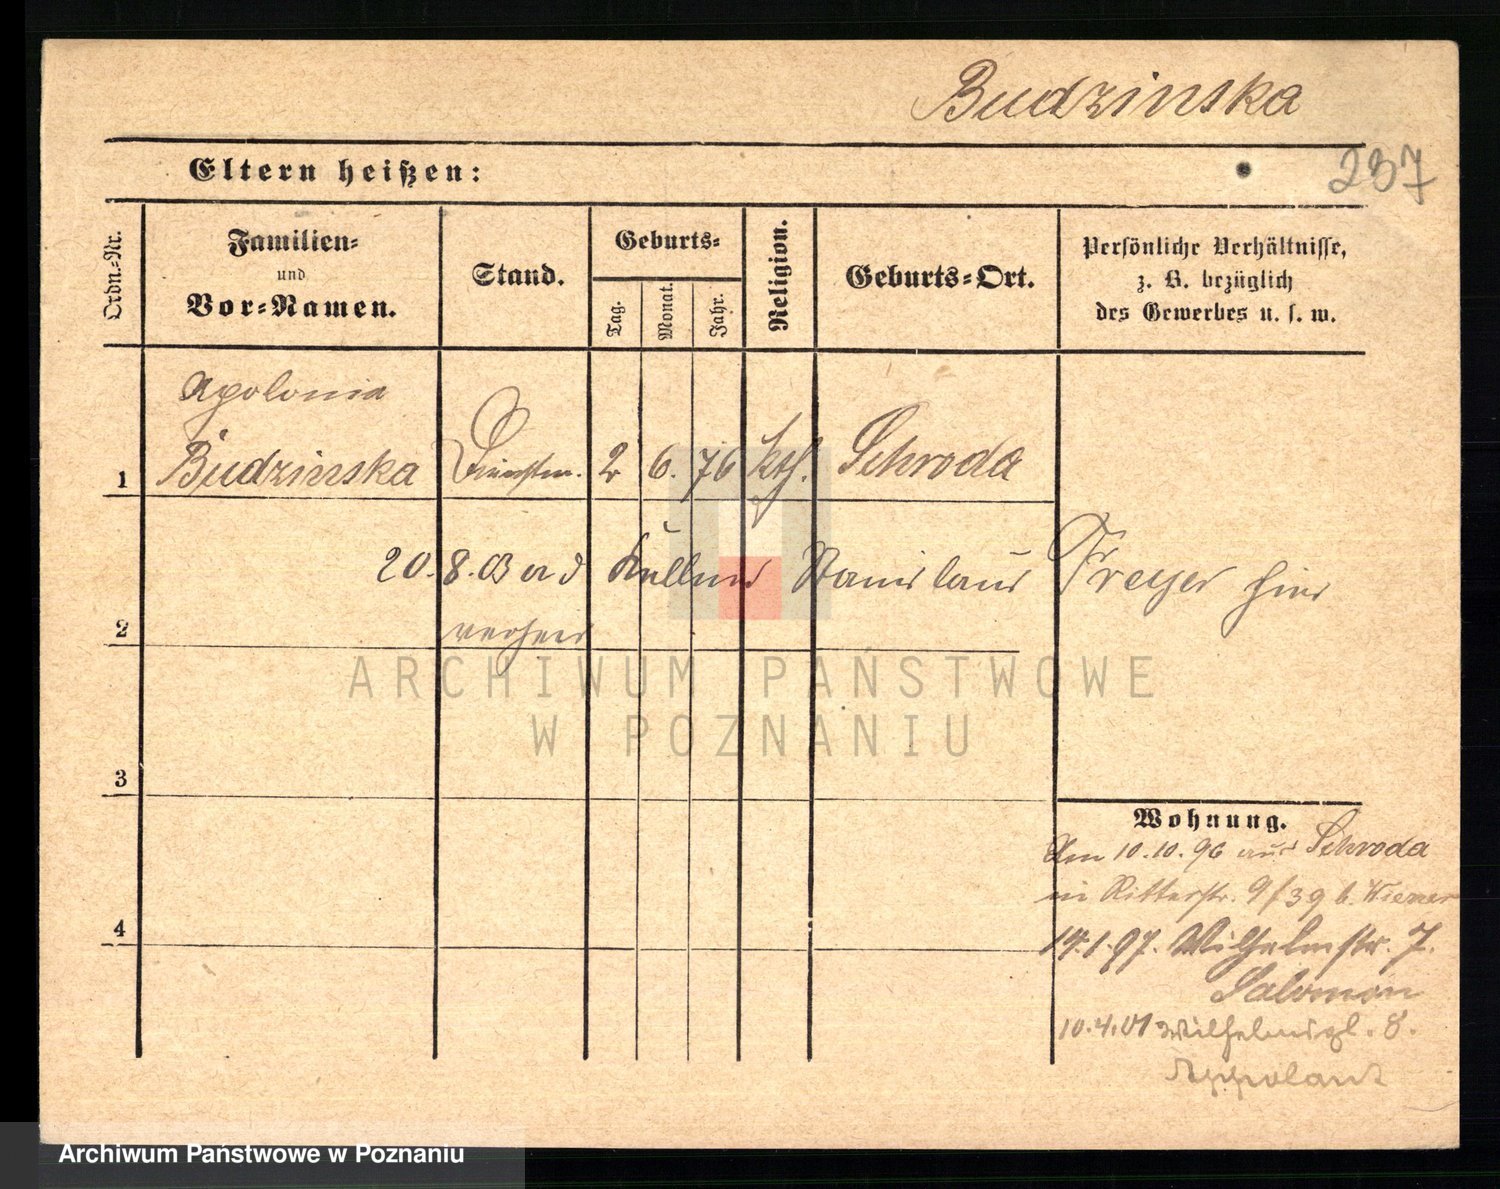 Budzinska
237
Eltern heißen:
Ordn.-Nr.
Familien-
und
Vor-Namen.
Stand.
Geburts-
Tag.
Monat.
Jahr.
Religion.
Geburts-Ort.
Persönliche Verhältnisse,
z. B. bezüglich
des Gewerbes u. s. w.
Apolonia
1 Budzinska 2 6. 76 kth. Schroda
20. 8. 03 Stanislaus Freyer hier
2
ARCHIWUM PAŃSTWOWE
W POZNANIU
3
Wohnung.
Am 10.10.96 aus Schroda
in Ritterstr. 9/39 b. Wiener
4
14.1.97. Wilhelmstr. 7.
Salomon
10.4.01 Wilhelmspl. 8.
Appolant
Archiwum Państwowe w Poznaniu